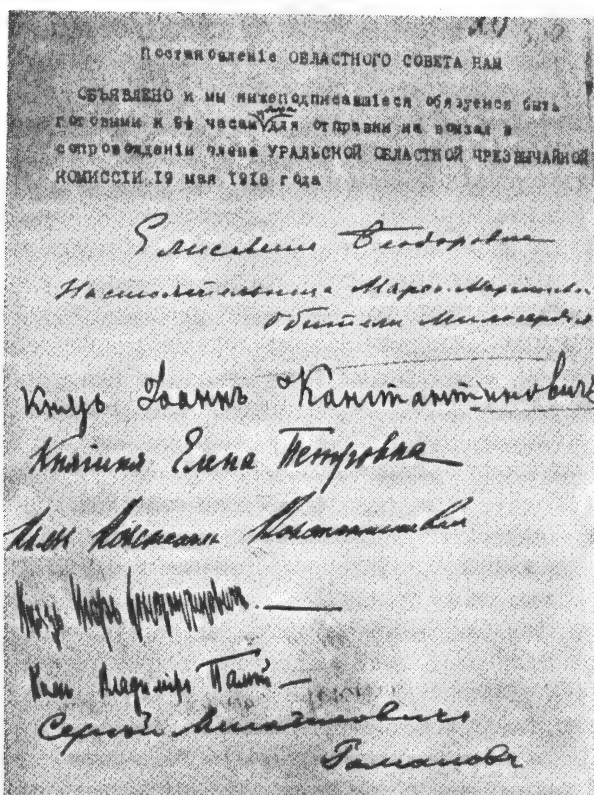 Постановленіе ОБЛАСТНОГО СОВЕТА НАМ
ОБЪЯВЛЕНО и мы нижеподписавшіеся обязуемся быть
готовыми к 9½ часам дня для отправки на вокзал в
сопровожденіи члена УРАЛЬСКОЙ ОБЛАСТНОЙ ЧРЕЗВЫЧАЙНОЙ
КОМИССІИ 19 мая 1918 года
Елисавета Ѳеодоровна
Настоятельница Марфо-Маріинской
Обители Милосердія
Князь Іоаннъ Констан­тиновичъ
Княгиня Елена Петровна
Князь Константин Константинович
Князь Игорь Константиновичъ
Князь Владиміръ Палѣй
Сергѣй Михайловичъ
Романовъ